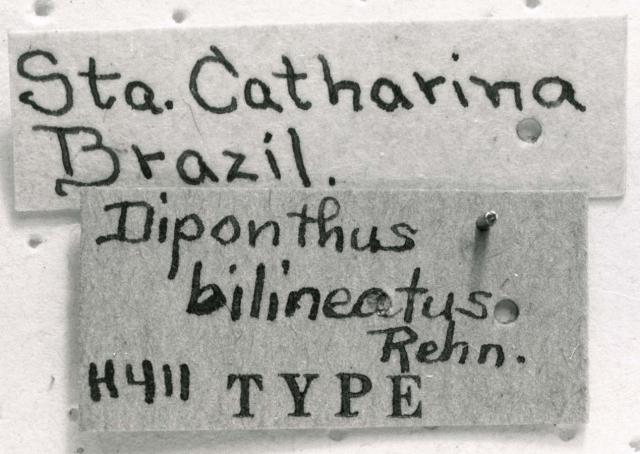 Sta. Catharina
Brazil.
Diponthus
bilineatus
Rehn.
H411 TYPE